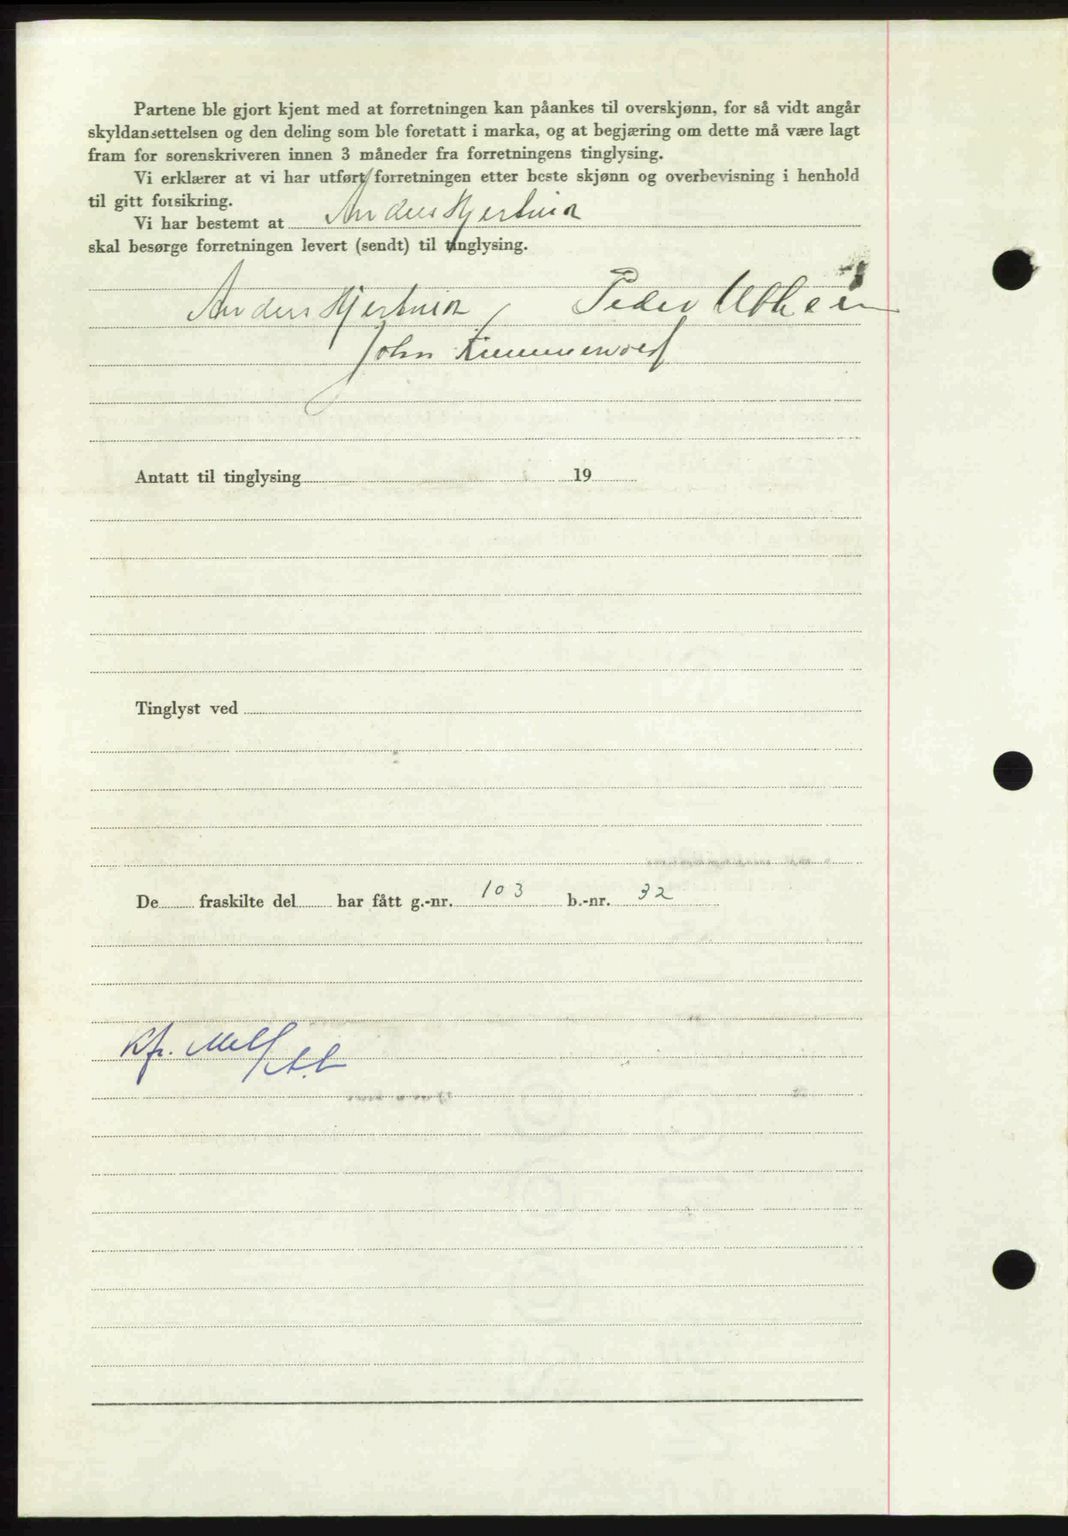 Partene ble gjort kjent med at forretningen kan påankes til overskjønn, for så vidt angår
skyldansettelsen og den deling som ble foretatt i marka, og at begjæring om dette må være lagt
fram for sorenskriveren innen 3 måneder fra forretningens tinglysing.
Vi erklærer at vi har utført forretningen etter beste skjønn og overbevisning i henhold
til gitt forsikring.
Vi har bestemt at Anders Hjertvik
skal besørge forretningen levert (sendt) til tinglysing.
Anders Hjertvik Peder Utheim
John
Antatt til tinglysing 19
Tinglyst ved
De fraskilte del har fått g.-nr. 103 b.-nr. 32
Kfr.